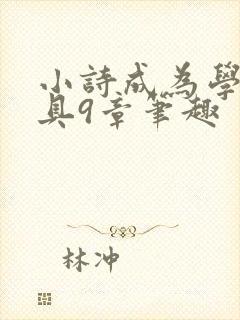 小詩成為學
具9章笔趣
林冲